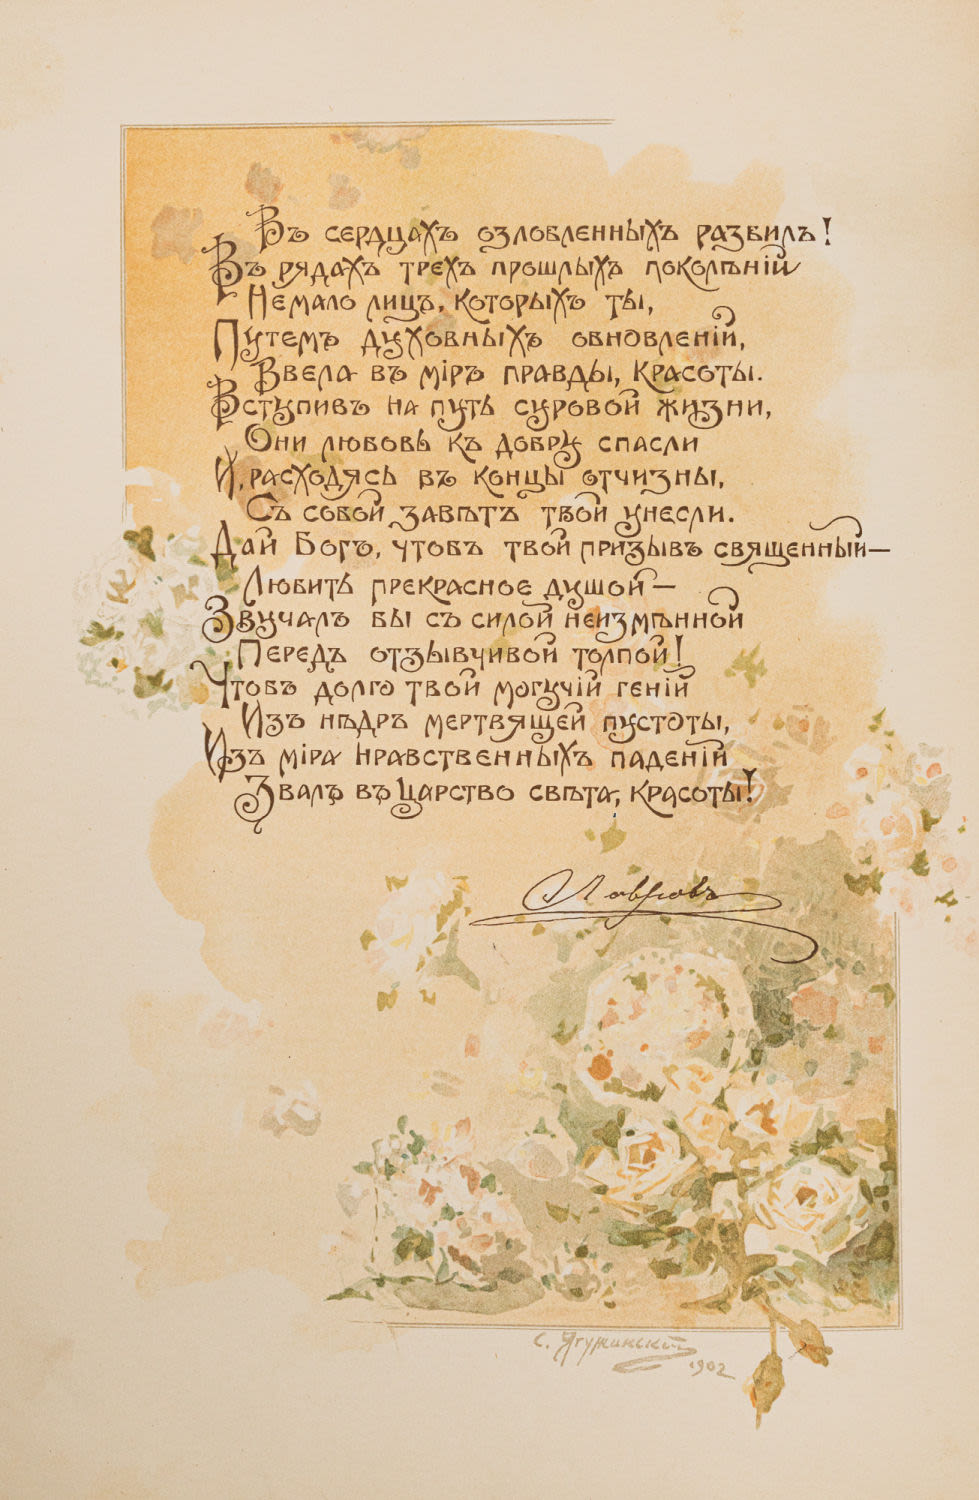 Въ сердцахъ озлобленныхъ развилъ!
Въ рядахъ трехъ прошлыхъ поколѣній
Немало лицъ, которыхъ ты,
Путемъ духовныхъ обновленій,
Ввела въ міръ правды, красоты.
Вступивъ на путь суровой жизни,
Они любовь къ добру спасли
И, расходясь въ концы отчизны,
Съ собой завѣтъ твой унесли.
Дай Богъ, чтобъ твой призывъ священный—
Любить прекрасное душой—
Звучалъ бы съ силой неизмѣнной
Передъ отзывчивой толпой!
Чтобъ долго твой могучій геній
Изъ нѣдръ мертвящей пустоты,
Изъ міра нравственныхъ паденій
Звалъ въ царство свѣта, красоты!
Лавровъ
С. Ягужинскій
1902